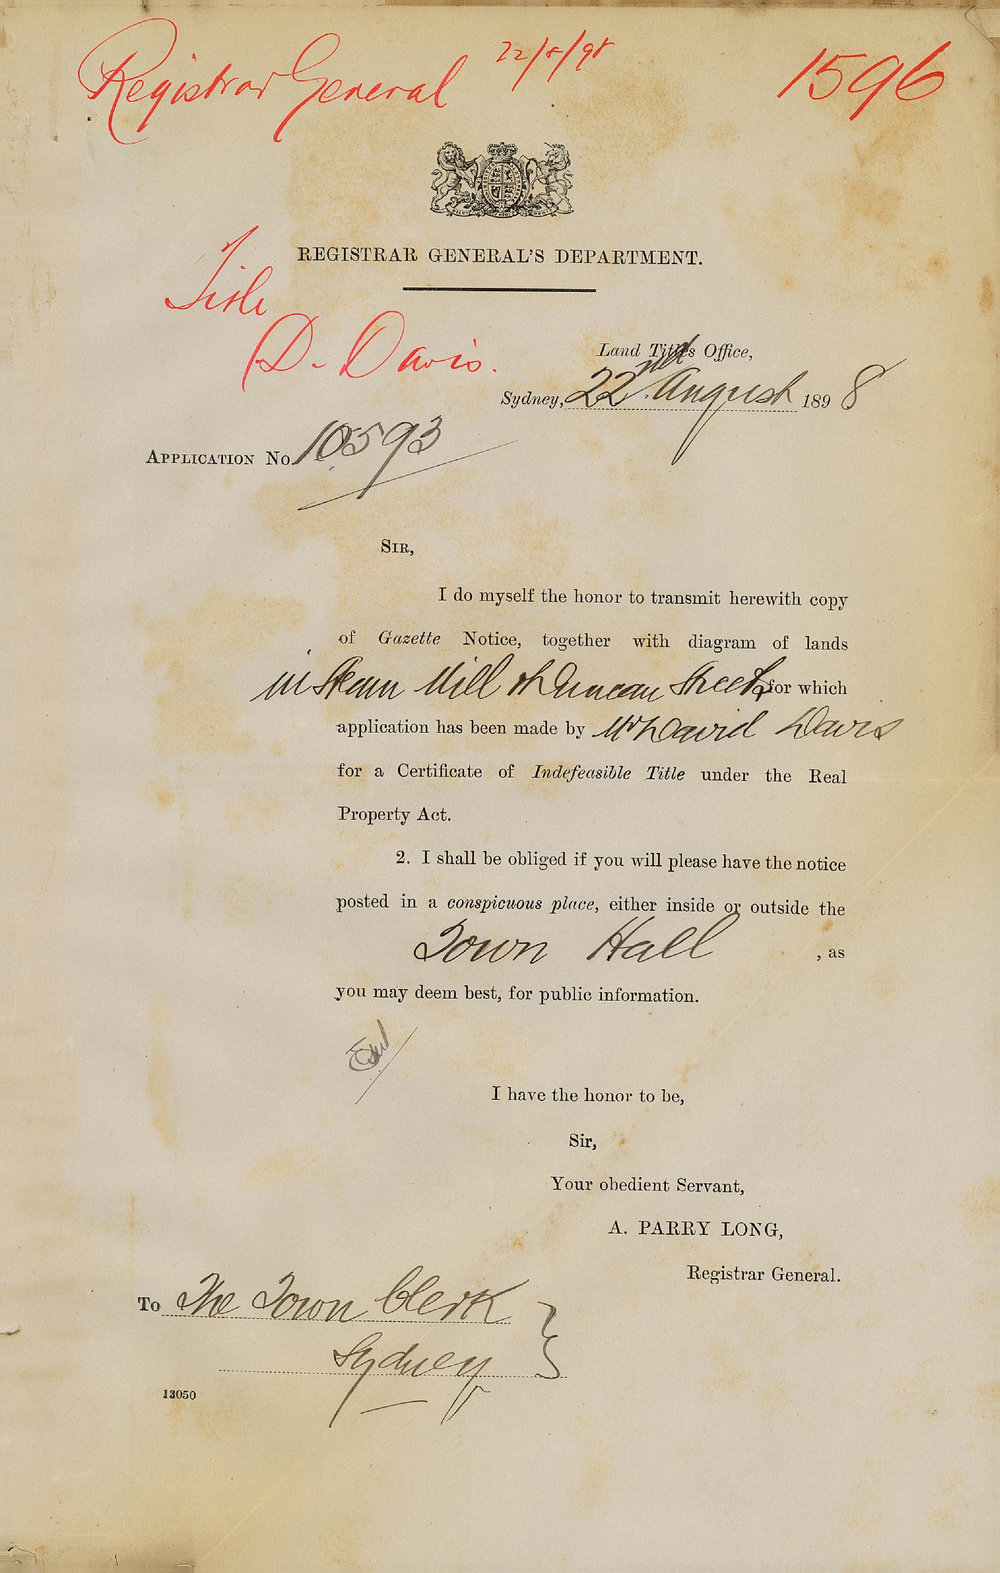 Registrar General 22/8/98 1596
REGISTRAR GENERAL'S DEPARTMENT.
Title
D. Davis.
Land Titles Office,
Sydney, 22nd August 1898
APPLICATION No. 10593
SIR,
I do myself the honor to transmit herewith copy
of Gazette Notice, together with diagram of lands
in Steam Mill & Duncan Streets, for which
application has been made by Mr David Davis
for a Certificate of Indefeasible Title under the Real
Property Act.
2. I shall be obliged if you will please have the notice
posted in a conspicuous place, either inside or outside the
Town Hall , as
you may deem best, for public information.
I have the honor to be,
Sir,
Your obedient Servant,
A. PARRY LONG,
Registrar General.
To The Town Clerk
Sydney
13050